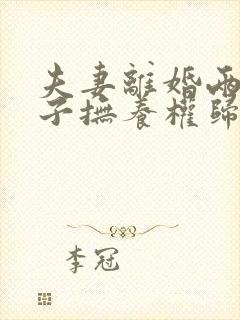 夫妻離婚兩
子撫養權歸
李冠